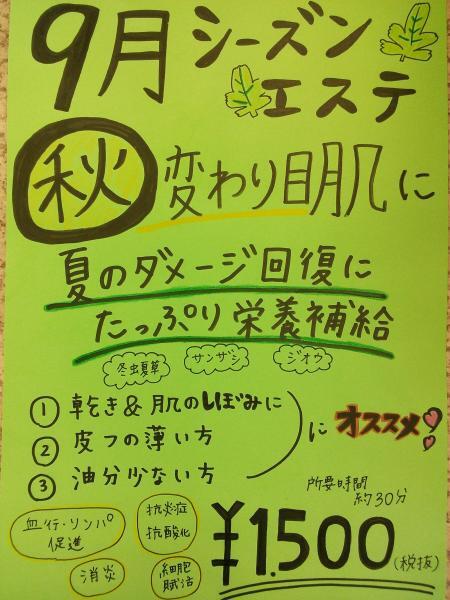 9月 シーズン
エステ
秋 変わり目肌に
夏のダメージ回復に
たっぷり栄養補給
冬虫夏草 サンザシ ジオウ
① 乾き&肌のしぼみに
② 皮フの薄い方
③ 油分少ない方
に オススメ!
所要時間
約30分
血行・リンパ
促進
抗炎症
抗酸化
消炎
細胞
賦活
¥1,500(税抜)